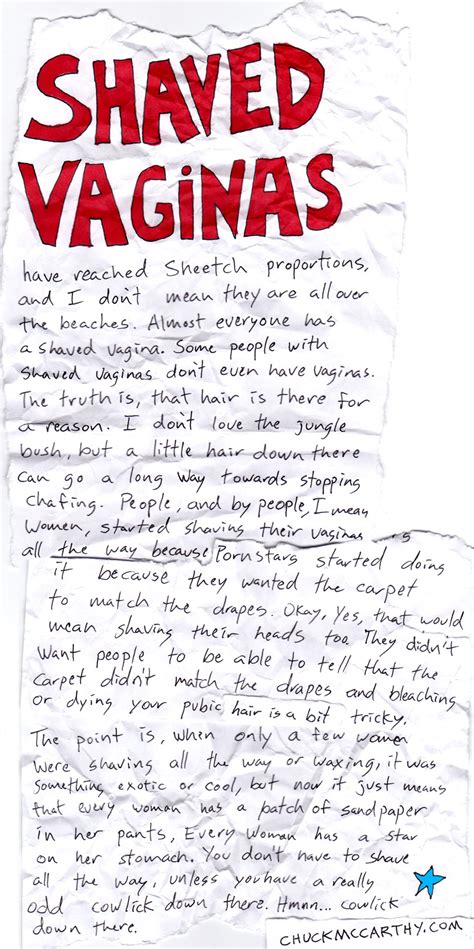 SHAVED
VAGiNAS
have reached Sneetch proportions,
and I don't mean they are all over
the beaches. Almost everyone has
a shaved vagina. Some people with
Shaved vaginas don't even have vaginas.
The truth is, that hair is there for
a reason. I don't love the jungle
bush, but a little hair down there
can go a long way towards stopping
chafing. People, and by people, I mean
women, started shaving their vaginas
all the way because Pornstars started doing
it because they wanted the carpet
to match the drapes. Okay, Yes, that would
mean shaving their heads too. They didn't
want people to be able to tell that the
carpet didn't match the drapes and bleaching
or dying your pubic hair is a bit tricky.
The point is, when only a few women
were shaving all the way or waxing, it was
something exotic or cool, but now it just means
that every woman has a patch of sandpaper
in her pants, Every woman has a star
on her stomach. You don't have to shave
all the way, unless you have a really
odd cowlick down there. Hmnn... cowlick
down there.
CHUCKMCCARTHY.COM